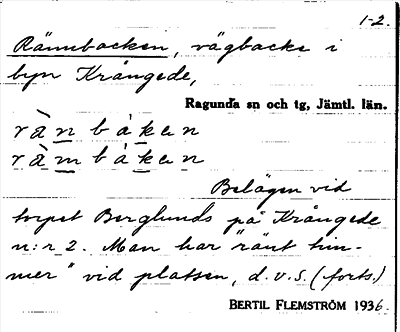 1-2.
Rännbacken, vägbacke i
byn Krångede,
Ragunda sn och tg, Jämtl. län.
r ä̀ n b à k e n
r ä̀ m b à k e n
Belägen vid
torpet Berglunds på Krångede
n:r 2. Man har "ränt tim-
mer" vid platsen, d.v.s. (forts.)
BERTIL FLEMSTRÖM 1936.